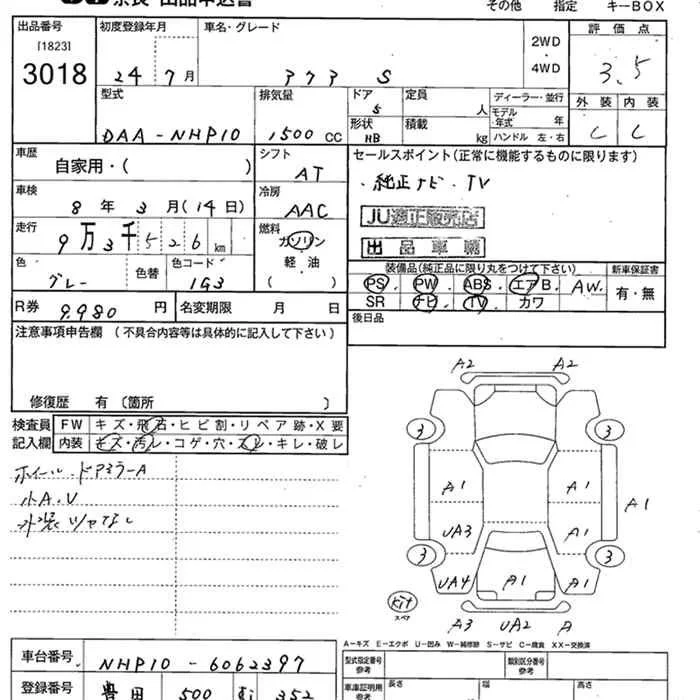 その他 指定 キーBOX
出品番号 初度登録年月 車名・グレード 2WD ・ 4WD 評価点
[1823]
3018 24 7月 373 S 3.5
型式 排気量 ドア 定員 ディーラー・並行 外装 内装
5 人 モデル・年式 年
DAA-NHP10 1500 CC 形状 積載 ハンドル 左・右 C C
HB kg
車歴 自家用・( ) シフト AT セールスポイント(正常に機能するものに限ります)
・純正ナビ・TV
車検 8年 3月(14日) 冷房 AAC
走行 9万3千526km 燃料 ガソリン
軽・油
( )
出品車輌
色 グレー 色替 色コード 1G3
装備品(純正品に限り丸をつけて下さい) 新車保証書
PS. PW. ABS. エアB. AW. 有・無
SR ナビ TV カワ
R券 9.980円 名変期限 月 日
後日品
注意事項申告欄 (不具合内容等は具体的に記入して下さい)
修復歴 有(箇所 )
検査員 FW キズ・飛石・ヒビ割・リペア跡・X要
記入欄 内装 キズ・汚レ・コゲ・穴・スレ・キレ・破レ
ホイール ドアミラーA
小A.U
外装ツヤなし
A2 A2
3 3
A1 A1 A1
UA3 A1
3 3
UA4 A1 A1
kit
スペア
A3 UA2 A
A-キズ E-エクボ U-凹み W-補修跡 S-サビ C-腐食 XX-交換済
車台番号 NHP10-6062397
型式指定番号 参考 類別区分番号 参考
登録番号 豊田 500 352
車庫証明用 参考 長さ 幅 高さ